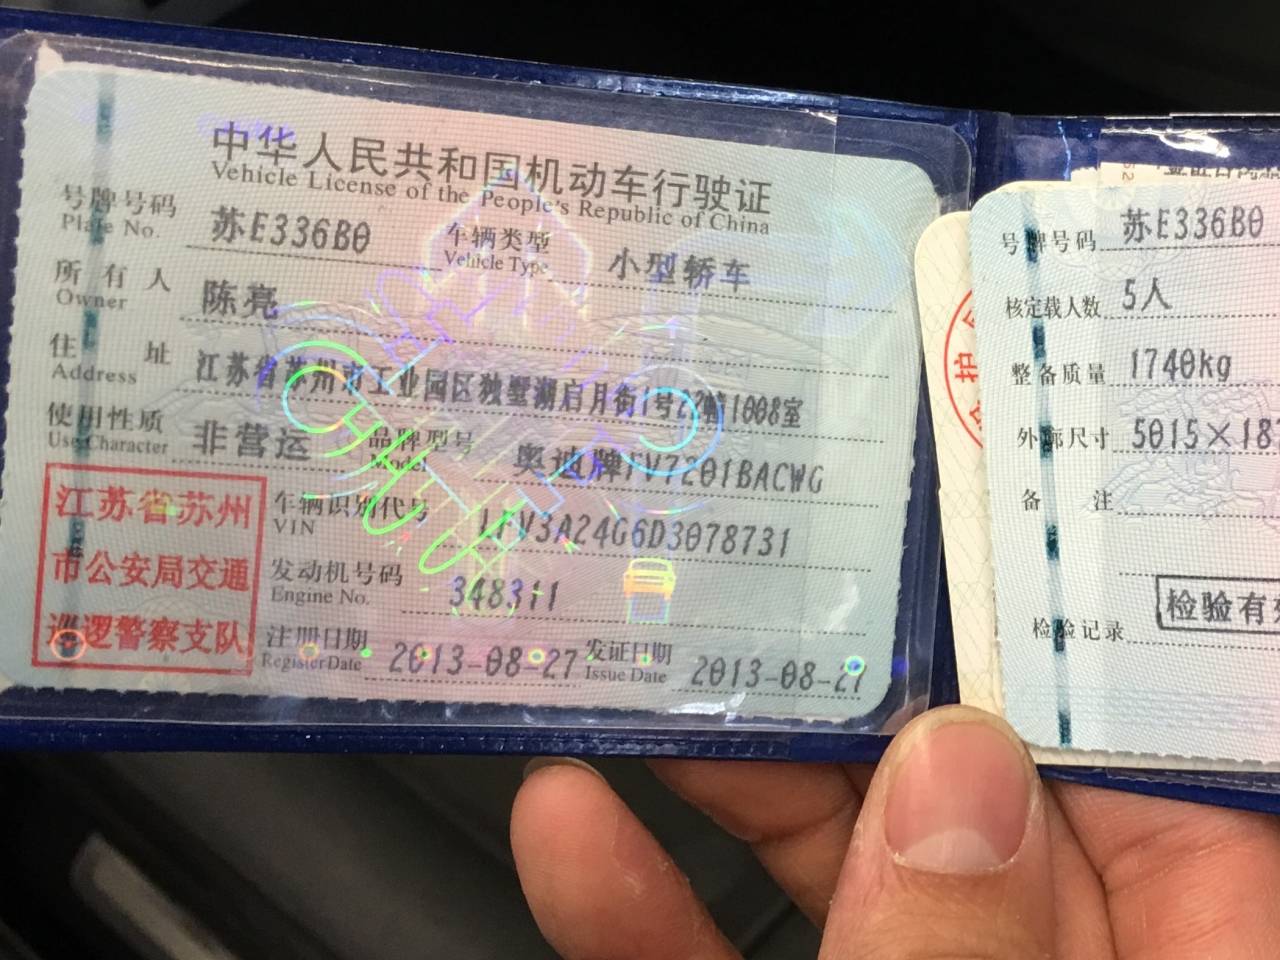 中华人民共和国机动车行驶证
Vehicle License of the People's Republic of China
号牌号码 苏E336B0 车辆类型 小型轿车
Plate No. Vehicle Type
所有人 陈亮
Owner
住址 江苏省苏州市工业园区独墅湖启月街1号22幢1008室
Address
使用性质 非营运 品牌型号 奥迪牌FV7201BACWG
Use Character Model
车辆识别代号 LFV3A24G6D3078731
VIN
发动机号码 348311
Engine No.
注册日期 2013-08-27 发证日期 2013-08-27
Register Date Issue Date
江苏省苏州
市公安局交通
巡逻警察支队
号牌号码 苏E336B0
核定载人数 5人
整备质量 1740kg
外廓尺寸 5015×18
备注
检验有
检验记录
护